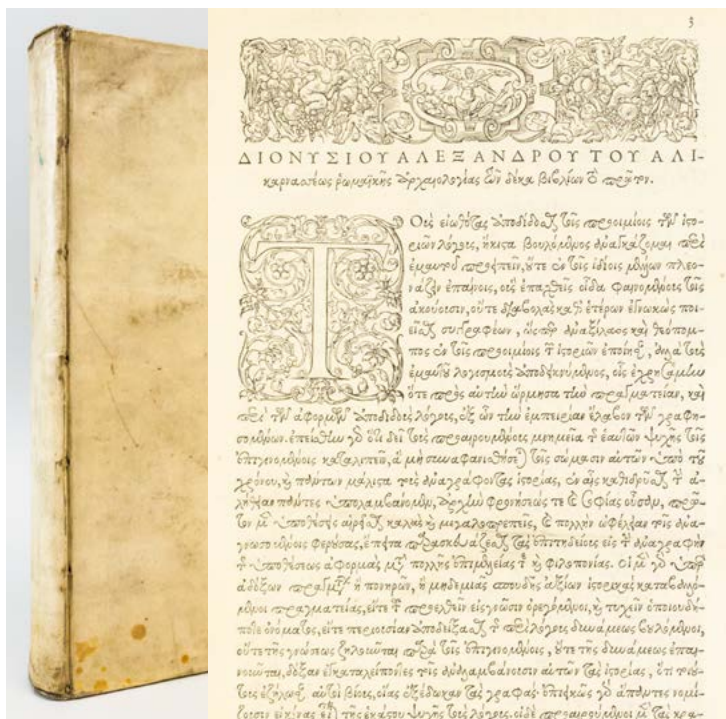 3
ΔΙΟΝΥΣΙΟΥ ΑΛΕΞΑΝΔΡΟΥ ΤΟΥ ΑΛΙ-
καρνασέως ῥωμαϊκῆς ἀρχαιολογίας τῶν δέκα βιβλίων τὸ πρῶτον.
ΤΟὺς εἰωθότας ἀποδίδοσθαι τοῖς προοιμίοις τῶν ἱστο-
ριῶν λόγους, ἥκιστα βουλόμενος ἀναγκάζομαι περὶ
ἐμαυτοῦ προειπεῖν, οὔτε ἐν τοῖς ἰδίοις μέλλων πλεο-
νάζειν ἐπαίνοις, οὓς ἐπαχθεῖς οἶδα φαινομένους τοῖς
ἀκούουσιν, οὔτε διαβολὰς καθ' ἑτέρων ἐγνωκὼς ποι-
εῖσθαι συγγραφέων, ὥσπερ ἀναξίλαος καὶ θεόπομ-
πος ἐν τοῖς προοιμίοις τῶν ἱστοριῶν ἐποίησαν, ἀλλὰ τοὺς
ἐμαυτοῦ λογισμοὺς ἀποδεικνύμενος, οἷς ἐχρησάμην
ὅτε πρὸς αὐτὴν ὥρμησα τὴν πραγματείαν, καὶ
περὶ τῶν ἀφορμῶν ἀποδιδοὺς λόγους, ἐξ ὧν τὴν ἐμπειρίαν ἔλαβον τῶν γραφη-
σομένων. ἐπείσθην γὰρ ὅτι δεῖ τοὺς προαιρουμένους μνημεῖα τῆς ἑαυτῶν ψυχῆς τοῖς
ἐπιγινομένοις καταλιπεῖν, ἃ μὴ συναφανισθήσεται τοῖς σώμασιν αὐτῶν ὑπὸ τοῦ
χρόνου, καὶ πάντων μάλιστα τοὺς ἀναγράφοντας ἱστορίας, ἐν αἷς καθιδρῦσθαι τὴν ἀ-
λήθειαν πάντες ὑπολαμβάνομεν, ἀρχὴν φρονήσεώς τε καὶ σοφίας οὖσαν, πρῶ-
τον μὲν ὑποθέσεις αἱρεῖσθαι καλὰς καὶ μεγαλοπρεπεῖς, καὶ πολλὴν ὠφέλειαν τοῖς ἀνα-
γνωσομένοις φερούσας, ἔπειτα παρασκευάζεσθαι τὰς ἐπιτηδείους εἰς τὴν ἀναγραφὴν
τῆς ὑποθέσεως ἀφορμὰς μετὰ πολλῆς ἐπιμελείας τε καὶ φιλοπονίας. οἱ μὲν γὰρ ὑπὲρ
ἀδόξων πραγμάτων ἢ πονηρῶν, ἢ μηδεμιᾶς σπουδῆς ἀξίων ἱστορικὰς καταβαλό-
μενοι πραγματείας, εἴτε τοῦ προελθεῖν εἰς γνῶσιν ὀρεγόμενοι, καὶ τυχεῖν ὁποιουδή-
ποτε ὀνόματος, εἴτε περιουσίαν ἀποδείξασθαι τῆς περὶ λόγους δυνάμεως βουλόμενοι,
οὔτε τῆς γνώσεως ζηλοῦνται παρὰ τοῖς ἐπιγινομένοις, οὔτε τῆς δυνάμεως ἐπαι-
νοῦνται, δόξαν ἐγκαταλείποντες τοῖς ἀναλαμβάνουσιν αὐτῶν τὰς ἱστορίας, ὅτι τοιού-
τους ἐζήλωσαν αὐτοὶ βίους, οἵας ἐξέδωκαν τὰς γραφάς· ἐπιεικῶς γὰρ ἅπαντες νομί-
ζουσιν εἰκόνας εἶναι τῆς ἑκάστου ψυχῆς τοὺς λόγους. οἱ δὲ προαιρούμενοι μὲν τὰς κρα-